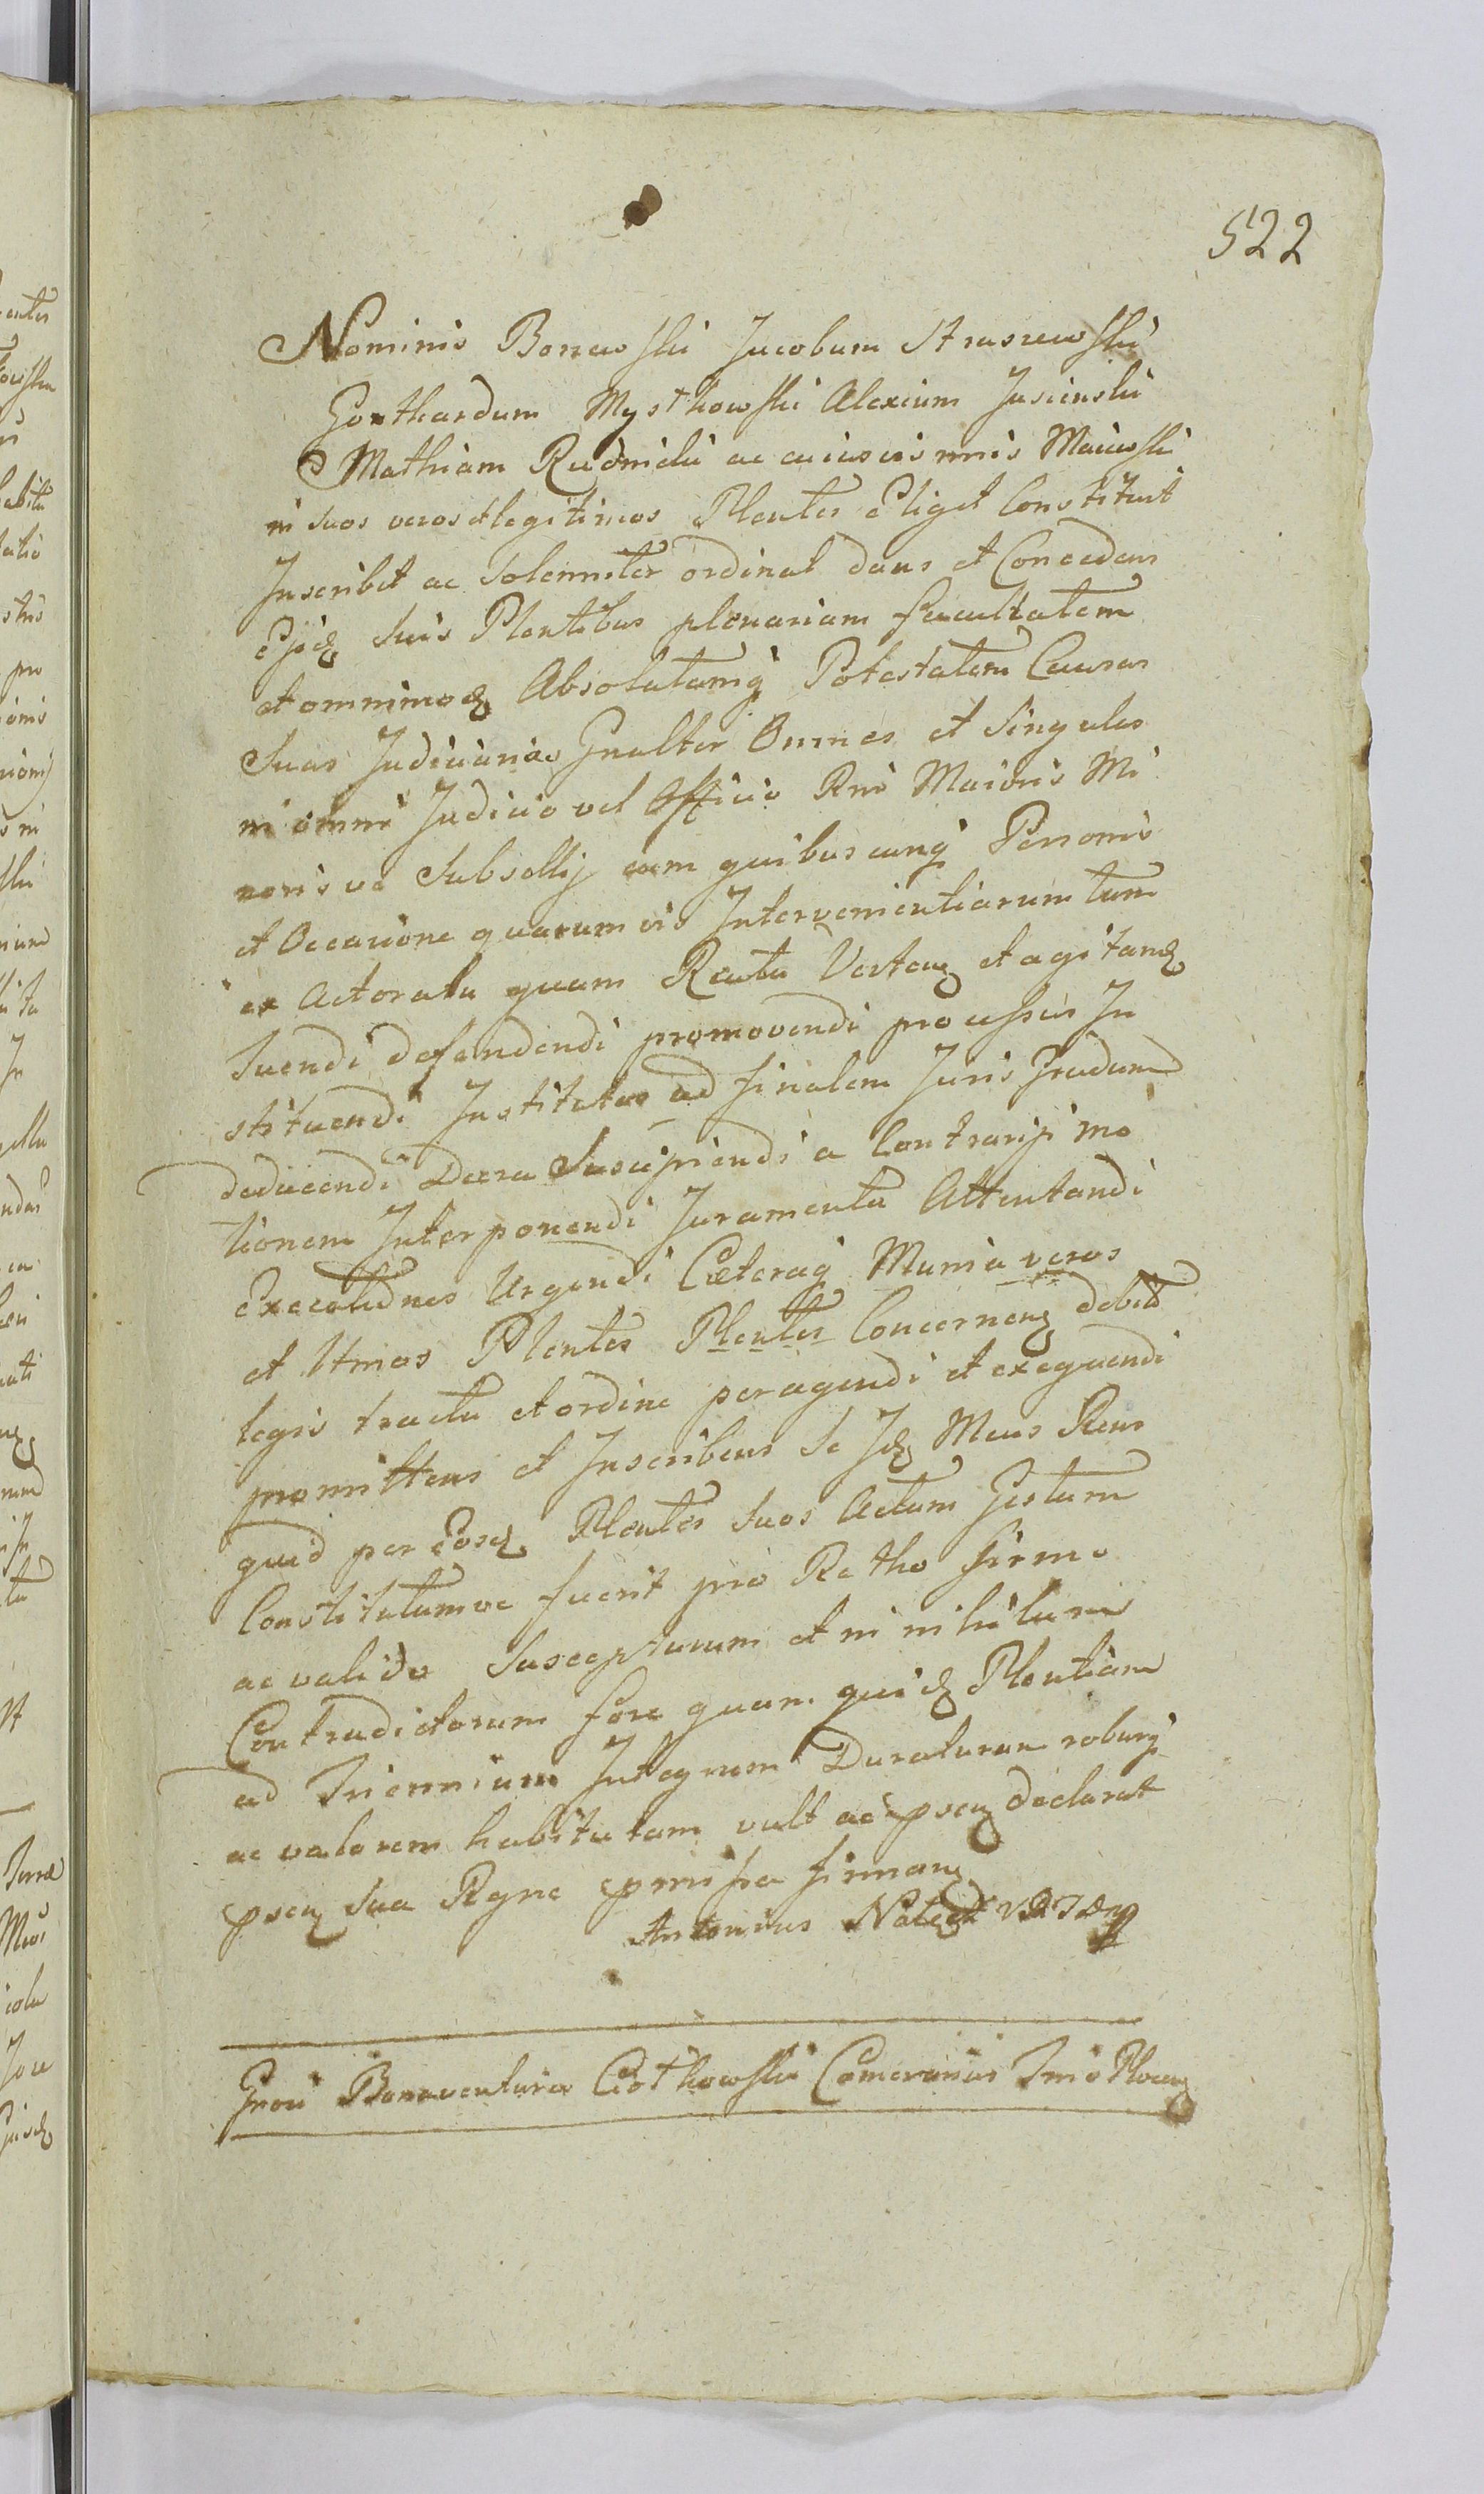 522
Nominis Boniewski Jacobum Straszewski
Gotthardum Mystkowski Alexium Jasienski
Mathiam Rudnicki ac cuiusvis nnis Maiewski
in suos veros et legitimos Plentes Eliget Constituit
Inscribit ac Solenniter ordinat dans et Concedens
Ejsdq Suis Plentibus plenariam facultatem
et omnimodq Absolutamq Potestatem Causas
Suas Judiciarias Gnalter Omnes et Singulas
in omni Judicio vel Officio Rni Maioris Mi
noris ve Subsellij cum quibuscunq Personis
et Occasione quarumvis Intervenientiarum tam
ex Actoratu quam Reatu Verten et agitanq
tuendi defendendi promovendi processus In
stituendi Institutos ad finalem Juris Gradum
deducendi Dccra Suscipiendi a Contrarijs mo
tionem Interponendi Juramenta Attentandi
Executiones Urgendi Caeteraq Munia veros
et ltmos Plentes Plentes Concernen debito
legis tractu et ordine peragendi et exequendi
promittens et Inscribens Se Idq Meus Rens
quid per Eosdq Plentes Suos Actum Gestum
Constitutumve fuerit pro Ratho firmo
ac valido Suscepturum et in nihilum
Contradicturum fore quam quidq Plentiam
ad Triennium Integrum Duraturam roburq
ac valorem habituram vult ac psen declarat
psen Sua Rgne pmissa firman
Antonius
Gnoi Bonaventura Ciotkowski Camerarius Trrio Plocen